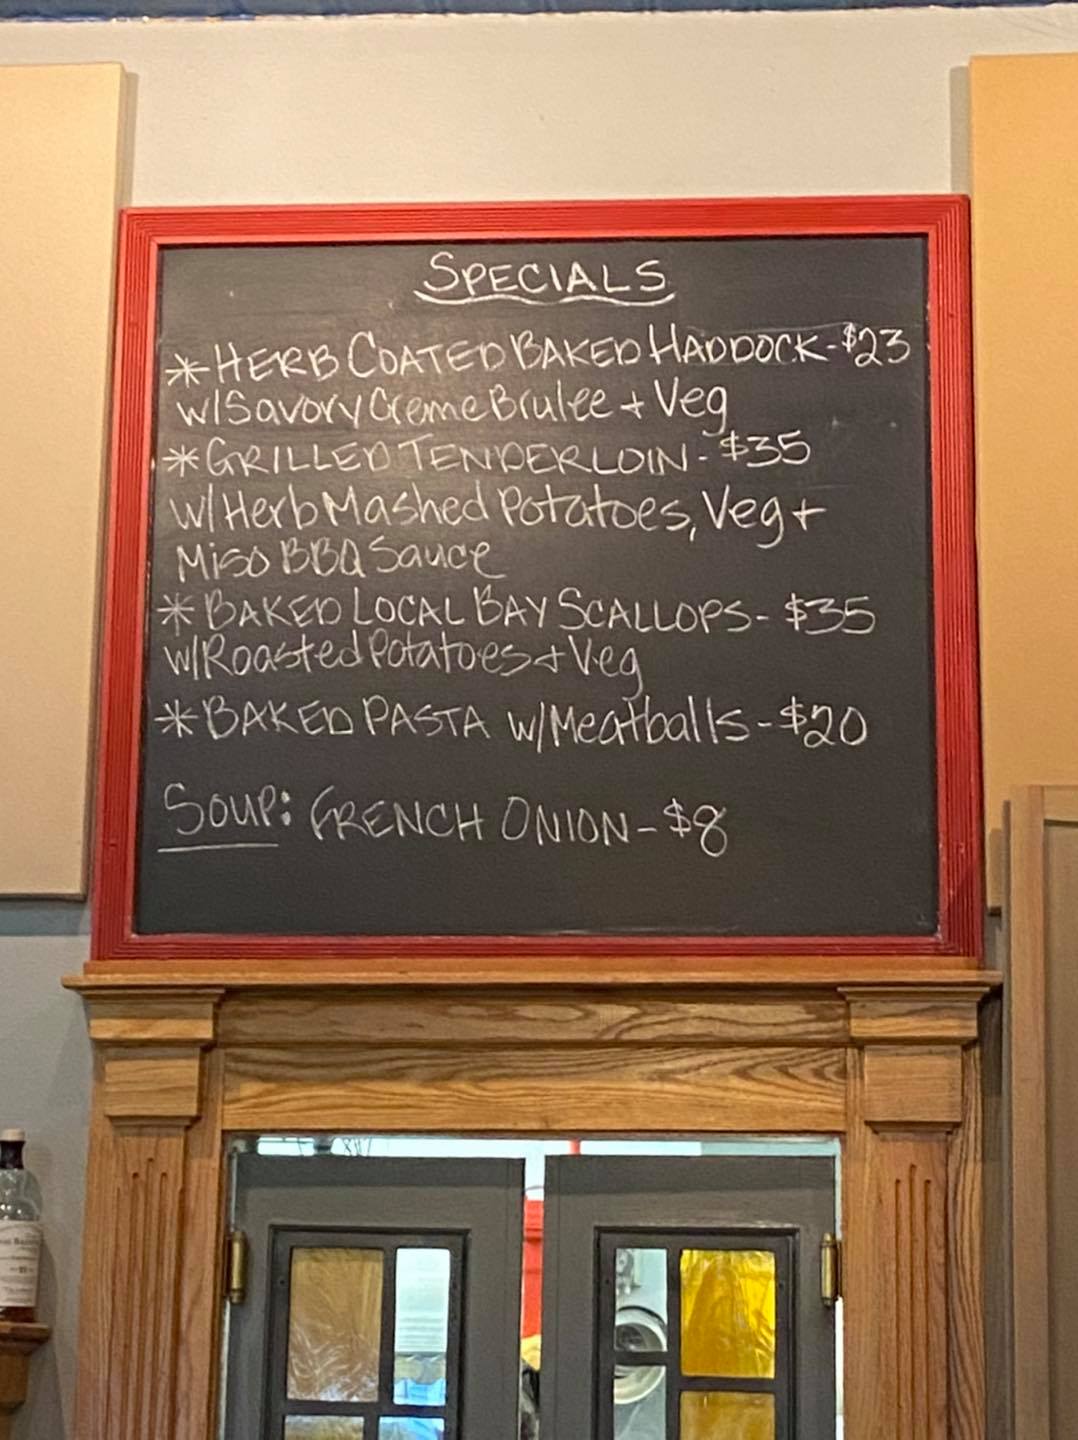 SPECIALS
* HERB COATED BAKED HADDOCK - $23
w/ Savory Creme Brulee + Veg
* GRILLED TENDERLOIN - $35
w/ Herb Mashed Potatoes, Veg +
Miso BBQ Sauce
* BAKED LOCAL BAY SCALLOPS - $35
w/ Roasted Potatoes + Veg
* BAKED PASTA w/ Meatballs - $20
SOUP: FRENCH ONION - $8